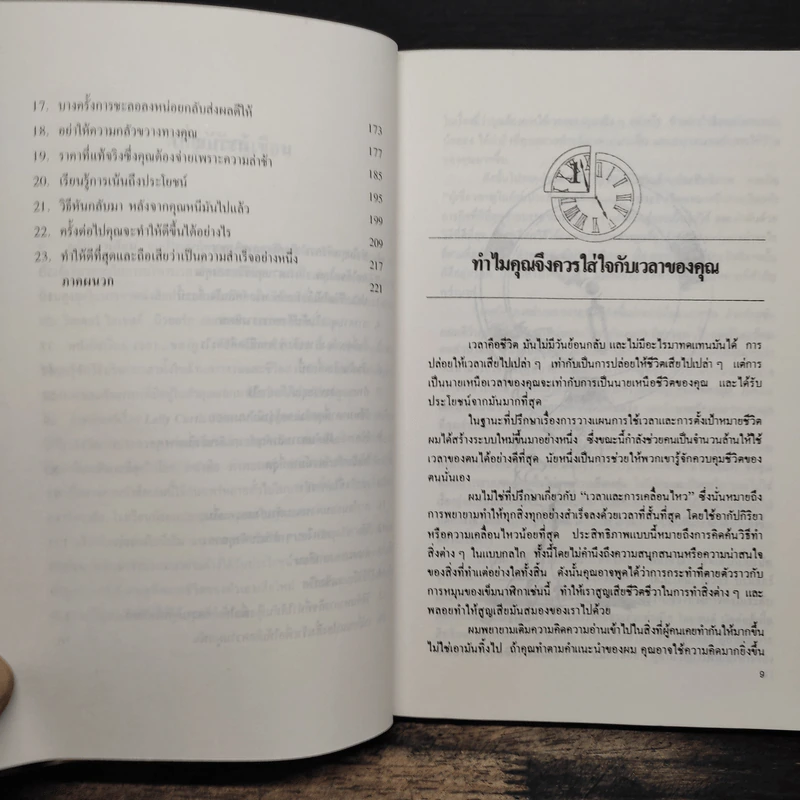 17. บางครั้งการชะลอลงหน่อยกลับส่งผลดีให้ 173
18. อย่าให้ความกลัวขวางทางคุณ 177
19. ราคาที่แท้จริงซึ่งคุณต้องจ่ายเพราะความล่าช้า 185
20. เรียนรู้การเน้นถึงประโยชน์ 195
21. วิธีหันกลับมา หลังจากคุณหนีมันไปแล้ว 199
22. ครั้งต่อไปคุณจะทำให้ดีขึ้นได้อย่างไร 209
23. ทำให้ดีที่สุดและถือเสียว่าเป็นความสำเร็จอย่างหนึ่ง 217
ภาคผนวก 221
1
ทำไมคุณจึงควรใส่ใจกับเวลาของคุณ
เวลาคือชีวิต มันไม่มีวันย้อนกลับ และไม่มีอะไรมาทดแทนมันได้ การ
ปล่อยให้เวลาเสียไปเปล่า ๆ เท่ากับเป็นการปล่อยให้ชีวิตเสียไปเปล่า ๆ แต่การ
เป็นนายเหนือเวลาของคุณจะเท่ากับการเป็นนายเหนือชีวิตของคุณ และได้รับ
ประโยชน์จากมันมากที่สุด
ในฐานะที่ปรึกษาเรื่องการวางแผนการใช้เวลาและการตั้งเป้าหมายชีวิต
ผมได้สร้างระบบใหม่ขึ้นมาอย่างหนึ่ง ซึ่งขณะนี้กำลังช่วยคนเป็นจำนวนล้านให้ใช้
เวลาของตนได้อย่างดีที่สุด นัยหนึ่งเป็นการช่วยให้พวกเขารู้จักควบคุมชีวิตของ
ตนนั่นเอง
ผมไม่ใช่ที่ปรึกษาเกี่ยวกับ “เวลาและการเคลื่อนไหว” ซึ่งนั่นหมายถึง
การพยายามทำให้ทุกสิ่งทุกอย่างสำเร็จลงด้วยเวลาที่สั้นที่สุด โดยใช้อากัปกิริยา
หรือความเคลื่อนไหวน้อยที่สุด ประสิทธิภาพแบบนี้หมายถึงการคิดค้นวิธีทำ
สิ่งต่าง ๆ ในแบบกลไก ทั้งนี้โดยไม่คำนึงถึงความสนุกสนานหรือความน่าสนใจ
ของสิ่งที่ทำแต่อย่างใดทั้งสิ้น ดังนั้นคุณอาจพูดได้ว่าการกระทำที่ตายตัวราวกับ
การหมุนของเข็มนาฬิกาเช่นนี้ ทำให้เราสูญเสียชีวิตชีวาในการทำสิ่งต่าง ๆ และ
พลอยทำให้สูญเสียมันสมองของเราไปด้วย
ผมพยายามเติมความคิดความอ่านเข้าไปในสิ่งที่ผู้คนเคยทำกันให้มากขึ้น
ไม่ใช่เอามันทิ้งไป ถ้าคุณทำตามคำแนะนำของผม คุณอาจใช้ความคิดมากยิ่งขึ้น
9